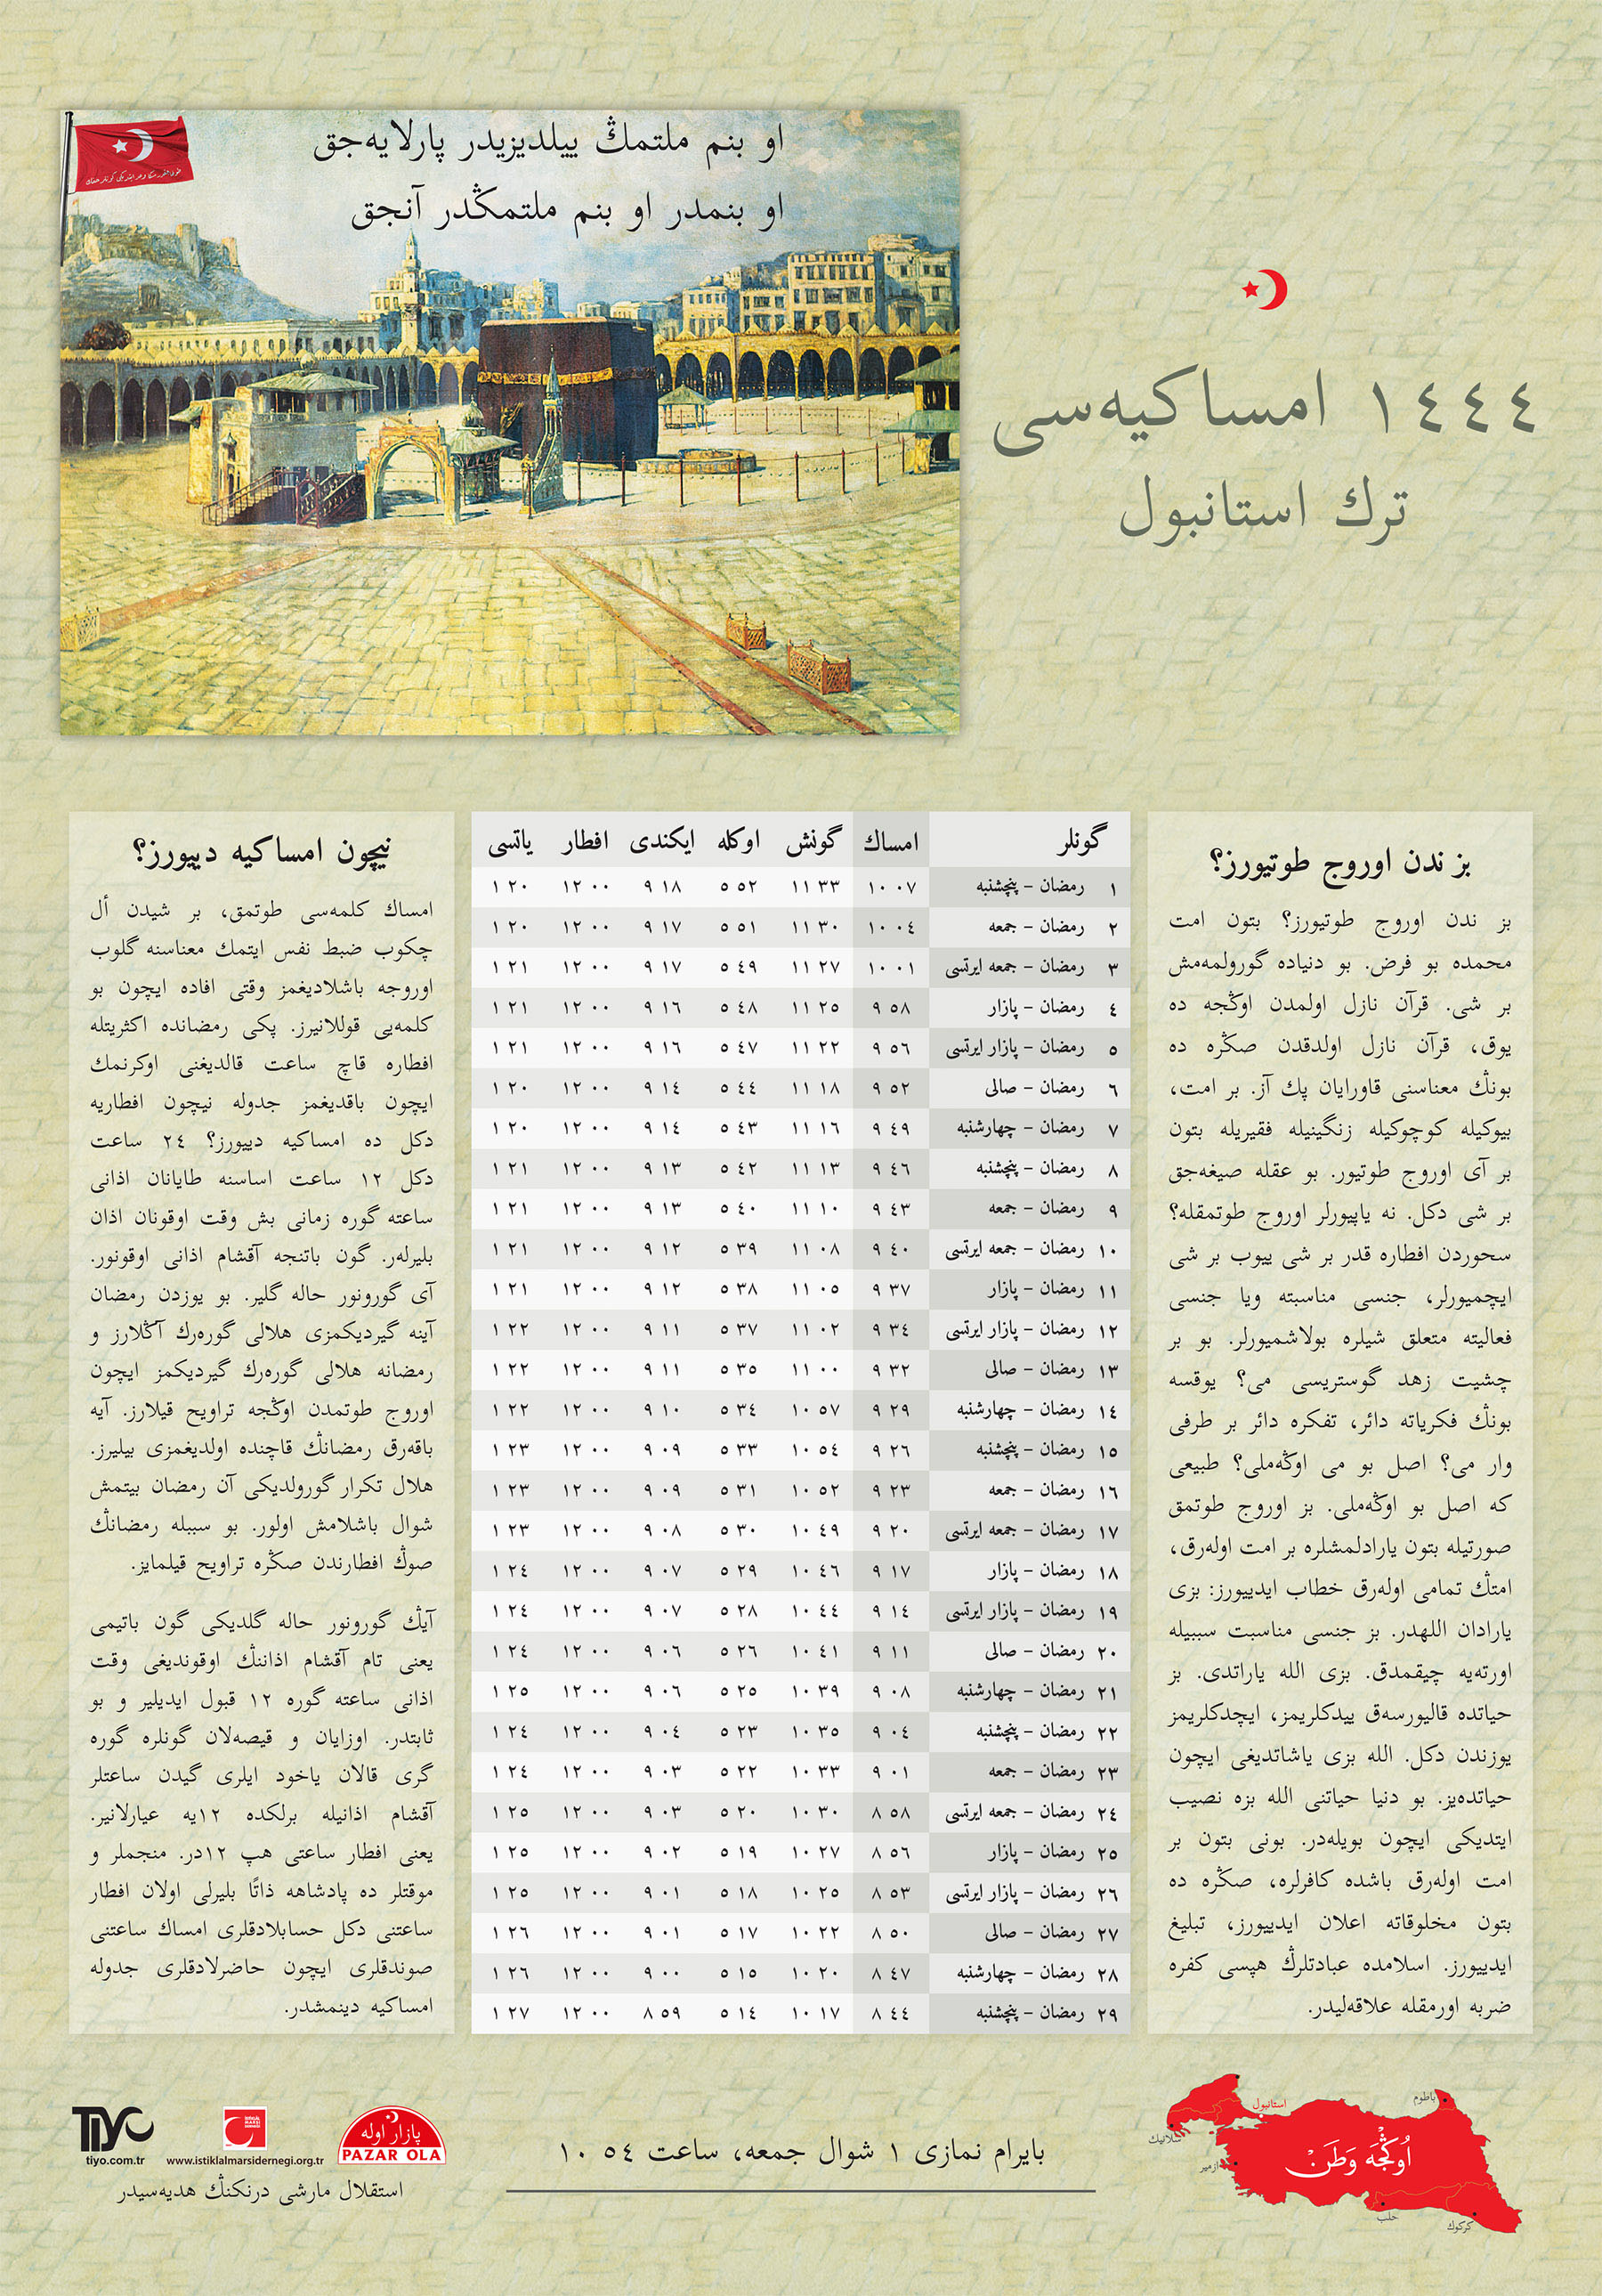 او بنم ملتمڭ ییلدیزیدر پارلایه‌جق
او بنمدر او بنم ملتمڭدر آنجق
١٤٤٤ امساكیه‌سی
ترك استانبول
بز ندن اوروج طوتیورز؟
بز ندن اوروج طوتیورز؟ بتون امت
محمده بو فرض. بو دنیاده گورولمه‌مش
بر شی. قرآن نازل اولمدن اوڭجه ده
یوق، قرآن نازل اولدقدن صڭره ده
بونڭ معناسنی قاورایان پك آز. بر امت،
بیوكیله كوچوكیله زنگینیله فقیریله بتون
بر آی اوروج طوتیور. بو عقله صیغه‌جق
بر شی دكل. نه یاپیورلر اوروج طوتمقله؟
سحوردن افطاره قدر بر شی ییوب بر شی
ایچمیورلر، جنسی مناسبته ویا جنسی
فعالیته متعلق شیلره بولاشمیورلر. بو بر
چشیت زهد گوستریسی می؟ یوقسه
بونڭ فكریاته دائر، تفكره دائر بر طرفی
وار می؟ اصل بو می اوڭه‌ملی؟ طبیعی
كه اصل بو اوڭه‌ملی. بز اوروج طوتمق
صورتیله بتون یارادلمشلره بر امت اوله‌رق،
امتڭ تمامی اوله‌رق خطاب ایدییورز: بزی
یارادان اللهدر. بز جنسی مناسبت سببیله
اورته‌یه چیقمدق. بزی الله یاراتدی. بز
حیاتده قالیورسه‌ق ییدكلریمز، ایچدكلریمز
یوزندن دكل. الله بزی یاشاتدیغی ایچون
حیاتده‌یز. بو دنیا حیاتنی الله بزه نصیب
ایتدیكی ایچون بویله‌در. بونی بتون بر
امت اوله‌رق باشده كافرلره، صڭره ده
بتون مخلوقاته اعلان ایدییورز، تبلیغ
ایدییورز. اسلامده عبادتلرڭ هپسی كفره
ضربه اورمقله علاقه‌لیدر.
گونلر امساك گونش اوكله ایكندی افطار یاتسی
١ رمضان – پنچشنبه ١٠ ٠٧ ١١ ٣٣ ٥ ٥٢ ٩ ١٨ ١٢ ٠٠ ١ ٢٠
٢ رمضان – جمعه ١٠ ٠٤ ١١ ٣٠ ٥ ٥١ ٩ ١٧ ١٢ ٠٠ ١ ٢٠
٣ رمضان – جمعه ایرتسی ١٠ ٠١ ١١ ٢٧ ٥ ٤٩ ٩ ١٧ ١٢ ٠٠ ١ ٢١
٤ رمضان – پازار ٩ ٥٨ ١١ ٢٥ ٥ ٤٨ ٩ ١٦ ١٢ ٠٠ ١ ٢١
٥ رمضان – پازار ایرتسی ٩ ٥٦ ١١ ٢٢ ٥ ٤٧ ٩ ١٦ ١٢ ٠٠ ١ ٢١
٦ رمضان – صالی ٩ ٥٢ ١١ ١٨ ٥ ٤٤ ٩ ١٤ ١٢ ٠٠ ١ ٢٠
٧ رمضان – چهارشنبه ٩ ٤٩ ١١ ١٦ ٥ ٤٣ ٩ ١٤ ١٢ ٠٠ ١ ٢٠
٨ رمضان – پنچشنبه ٩ ٤٦ ١١ ١٣ ٥ ٤٢ ٩ ١٣ ١٢ ٠٠ ١ ٢١
٩ رمضان – جمعه ٩ ٤٣ ١١ ١٠ ٥ ٤٠ ٩ ١٣ ١٢ ٠٠ ١ ٢١
١٠ رمضان – جمعه ایرتسی ٩ ٤٠ ١١ ٠٨ ٥ ٣٩ ٩ ١٢ ١٢ ٠٠ ١ ٢١
١١ رمضان – پازار ٩ ٣٧ ١١ ٠٥ ٥ ٣٨ ٩ ١٢ ١٢ ٠٠ ١ ٢١
١٢ رمضان – پازار ایرتسی ٩ ٣٤ ١١ ٠٢ ٥ ٣٧ ٩ ١١ ١٢ ٠٠ ١ ٢٢
١٣ رمضان – صالی ٩ ٣٢ ١١ ٠٠ ٥ ٣٥ ٩ ١١ ١٢ ٠٠ ١ ٢٢
١٤ رمضان – چهارشنبه ٩ ٢٩ ١٠ ٥٧ ٥ ٣٤ ٩ ١٠ ١٢ ٠٠ ١ ٢٢
١٥ رمضان – پنچشنبه ٩ ٢٦ ١٠ ٥٤ ٥ ٣٣ ٩ ٠٩ ١٢ ٠٠ ١ ٢٣
١٦ رمضان – جمعه ٩ ٢٣ ١٠ ٥٢ ٥ ٣١ ٩ ٠٩ ١٢ ٠٠ ١ ٢٣
١٧ رمضان – جمعه ایرتسی ٩ ٢٠ ١٠ ٤٩ ٥ ٣٠ ٩ ٠٨ ١٢ ٠٠ ١ ٢٣
١٨ رمضان – پازار ٩ ١٧ ١٠ ٤٦ ٥ ٢٩ ٩ ٠٧ ١٢ ٠٠ ١ ٢٤
١٩ رمضان – پازار ایرتسی ٩ ١٤ ١٠ ٤٤ ٥ ٢٨ ٩ ٠٧ ١٢ ٠٠ ١ ٢٤
٢٠ رمضان – صالی ٩ ١١ ١٠ ٤١ ٥ ٢٦ ٩ ٠٦ ١٢ ٠٠ ١ ٢٤
٢١ رمضان – چهارشنبه ٩ ٠٨ ١٠ ٣٩ ٥ ٢٥ ٩ ٠٦ ١٢ ٠٠ ١ ٢٥
٢٢ رمضان – پنچشنبه ٩ ٠٤ ١٠ ٣٥ ٥ ٢٣ ٩ ٠٤ ١٢ ٠٠ ١ ٢٤
٢٣ رمضان – جمعه ٩ ٠١ ١٠ ٣٣ ٥ ٢٢ ٩ ٠٣ ١٢ ٠٠ ١ ٢٤
٢٤ رمضان – جمعه ایرتسی ٨ ٥٨ ١٠ ٣٠ ٥ ٢٠ ٩ ٠٣ ١٢ ٠٠ ١ ٢٥
٢٥ رمضان – پازار ٨ ٥٦ ١٠ ٢٧ ٥ ١٩ ٩ ٠٢ ١٢ ٠٠ ١ ٢٥
٢٦ رمضان – پازار ایرتسی ٨ ٥٣ ١٠ ٢٥ ٥ ١٨ ٩ ٠١ ١٢ ٠٠ ١ ٢٥
٢٧ رمضان – صالی ٨ ٥٠ ١٠ ٢٢ ٥ ١٧ ٩ ٠١ ١٢ ٠٠ ١ ٢٦
٢٨ رمضان – چهارشنبه ٨ ٤٧ ١٠ ٢٠ ٥ ١٥ ٩ ٠٠ ١٢ ٠٠ ١ ٢٦
٢٩ رمضان – پنچشنبه ٨ ٤٤ ١٠ ١٧ ٥ ١٤ ٨ ٥٩ ١٢ ٠٠ ١ ٢٧
نیچون امساكیه دییورز؟
امساك كلمه‌سی طوتمق، بر شیدن أل
چكوب ضبط نفس ایتمك معناسنه گلوب
اوروجه باشلادیغمز وقتی افاده ایچون بو
كلمه‌یی قوللانیرز. پكی رمضانده اكثریتله
افطاره قاچ ساعت قالدیغنی اوكرنمك
ایچون باقدیغمز جدوله نیچون افطاریه
دكل ده امساكیه دییورز؟ ٢٤ ساعت
دكل ١٢ ساعت اساسنه طایانان اذانی
ساعته گوره زمانی بش وقت اوقونان اذان
بلیرله‌ر. گون باتنجه آقشام اذانی اوقونور.
آی گورونور حاله گلیر. بو یوزدن رمضان
آینه گیردیكمزی هلالی گوره‌رك آڭلارز و
رمضانه هلالی گوره‌رك گیردیكمز ایچون
اوروج طوتمدن اوڭجه تراویح قیلارز. آیه
باقه‌رق رمضانڭ قاچنده اولدیغمزی بیلیرز.
هلال تكرار گورولدیكی آن رمضان بیتمش
شوال باشلامش اولور. بو سببله رمضانڭ
صوڭ افطارندن صڭره تراویح قیلمایز.
آیڭ گورونور حاله گلدیكی گون باتیمی
یعنی تام آقشام اذاننڭ اوقوندیغی وقت
اذانی ساعته گوره ١٢ قبول ایدیلیر و بو
ثابتدر. اوزایان و قیصه‌لان گونلره گوره
گری قالان یاخود ایلری گیدن ساعتلر
آقشام اذانیله برلكده ١٢یه عیارلانیر.
یعنی افطار ساعتی هپ ١٢در. منجملر و
موقتلر ده پادشاهه ذاتًا بلیرلی اولان افطار
ساعتنی دكل حسابلادقلری امساك ساعتنی
صوندقلری ایچون حاضرلادقلری جدوله
امساكیه دینمشدر.
باطوم
استانبول
سلانیك
ازمیر
حلب
كركوك
اُوڭجَه وَطَنْ
بایرام نمازی ١ شوال جمعه، ساعت ٥٤ ١٠
TIYO
tiyo.com.tr
www.istiklalmarsidernegi.org.tr
پازار اوله
PAZAR OLA
استقلال مارشی درنكنڭ هدیه‌سیدر